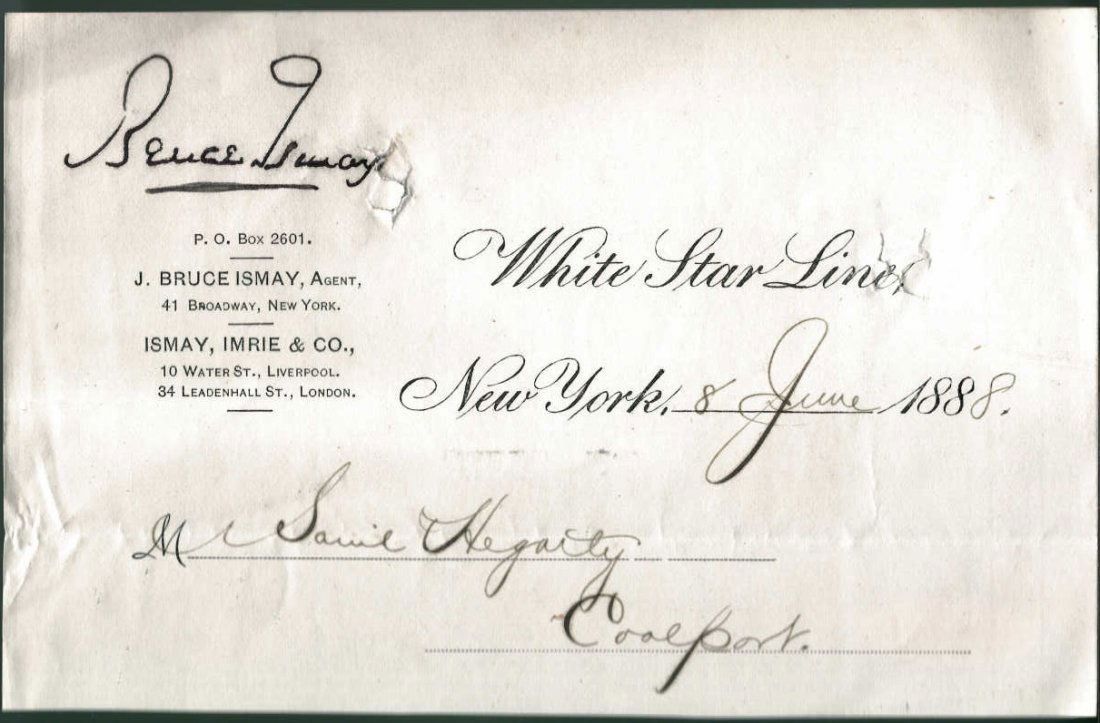 Bruce Ismay
P. O. Box 2601.
J. BRUCE ISMAY, AGENT,
41 BROADWAY, NEW YORK.
ISMAY, IMRIE & CO.,
10 WATER ST., LIVERPOOL.
34 LEADENHALL ST., LONDON.
White Star Line,
New York, 8 June 1888.
Mr Saml Hegarty
Coalport.